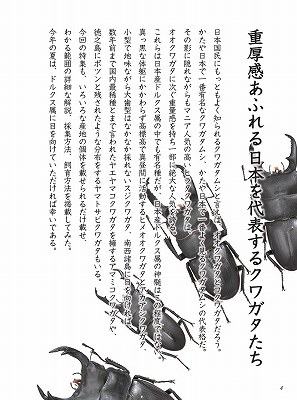 重厚感あふれる日本を代表するクワガタたち
日本国民にもっともよく知られるクワガタムシと言えば、オオクワガタとコクワガタだろう。
かたや日本で一番有名なクワガタムシ、かたや日本で一番よく見るクワガタムシの代表格だ。
その影に隠れながらもマニア人気の高いヒラタクワガタは、
オオクワガタに次ぐ重量感を持ち一部に絶大な人気を誇る。
これらは日本産ドルクス属の中でも有名種だが、日本産ドルクス属の神髄はこの程度ではない。
真っ黒な体躯にかかわらず高標高で真昼間に活動するヒメオオクワガタとアカアシクワガタ、
小型で地味ながら大歯型はなかなか採れないスジクワガタ、南西諸島に目を向ければ、
数年前まで国内最稀種とまで言われたヤエヤマコクワガタを擁するアマミコクワガタや、
徳之島にポツンと残されたような分布をするヤマトサビクワガタもいる。
今回の特集も、いろいろな産地の個体を載せられるだけ載せ、
わかる範囲の詳細な解説、採集方法、飼育方法を掲載してみた。
今年の夏は、ドルクス属に目を向けていただければ幸いである。
4